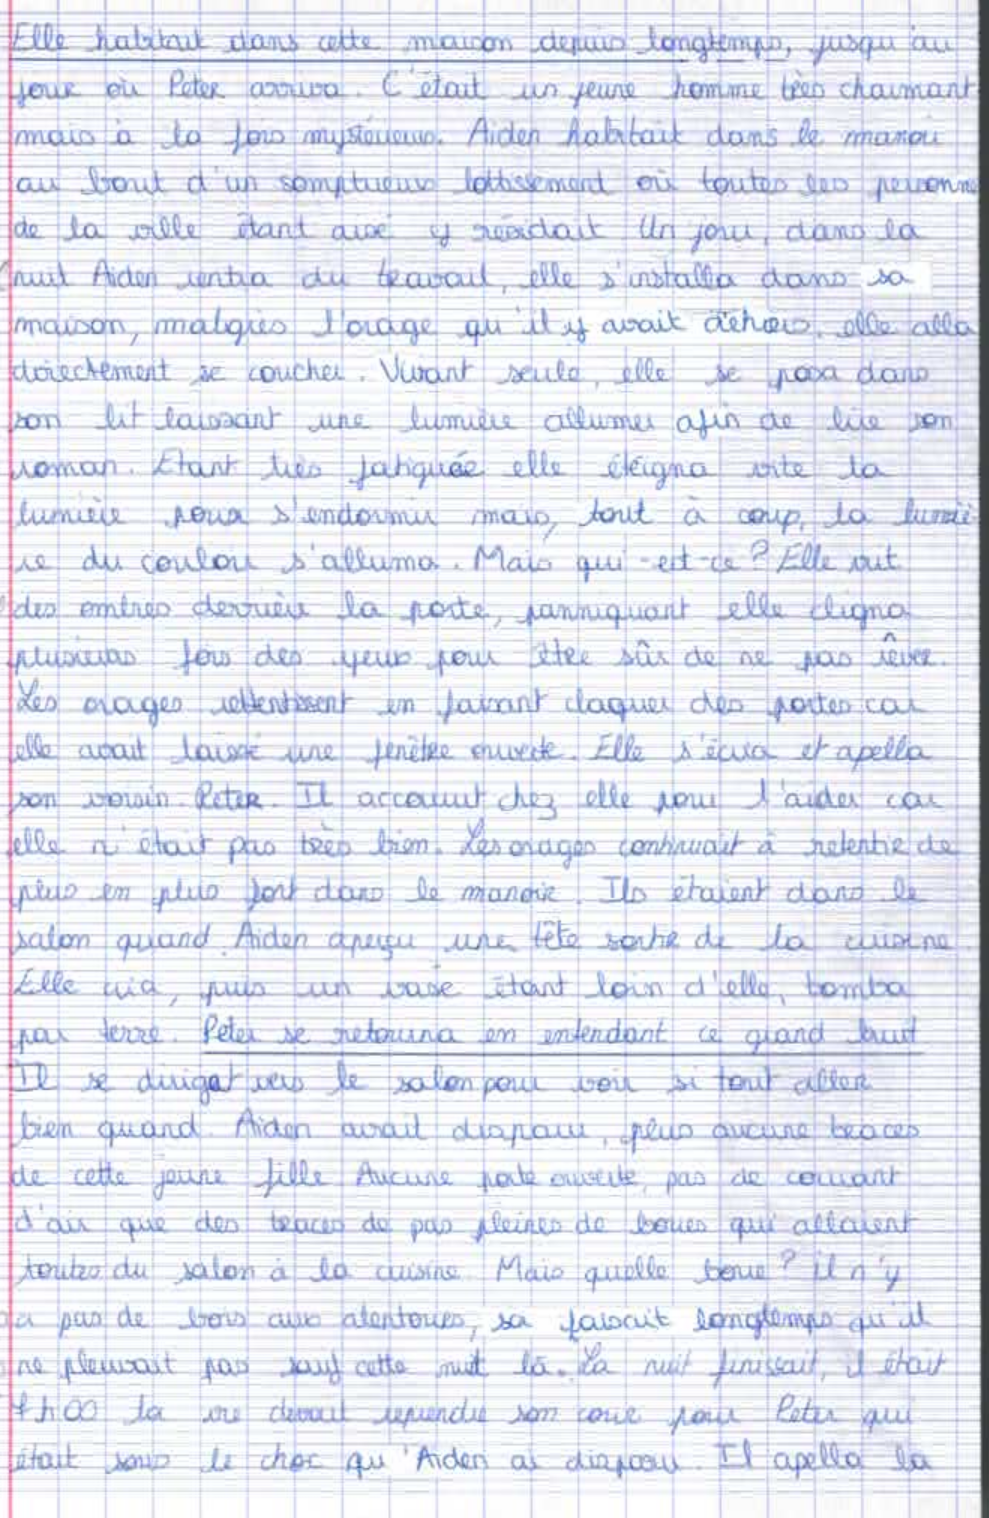 Elle habitait dans cette maison depuis longtemps, jusqu'au
jour où Peter arriva. C'était un jeune homme très charmant
mais à la fois mystérieux. Aiden habitait dans le manoir
au bout d'un somptueux lottissement où toutes les personne
de la ville étant aisé y résidait Un jour, dans la
nuit Aiden rentra du travail, elle s'installa dans sa
maison, malgrès l'orage qu'il y avait dehors, elle alla
directement se coucher. Vivant seule, elle se posa dans
son lit laissant une lumière allumer afin de lire son
roman. Etant très fatiguée elle éteigna vite la
lumière pour s'endormir mais, tout à coup, la lumiè-
re du couloir s'alluma. Mais qui-est-ce? Elle vit
des ombres derrière la porte, panniquant elle cligna
plusieurs fois des yeux pour être sûr de ne pas rêver.
Les orages retentissent en faisant claquer des portes car
elle avait laissé une fenêtre ouverte. Elle s'écria et apella
son voisin Peter. Il accourut chez elle pour l'aider car
elle n'était pas très bien. Les orages continuait à retentir de
plus en plus fort dans le manoir. Ils étaient dans le
salon quand Aiden aperçu une tête sortie de la cuisine
Elle cria, puis un vase étant loin d'elle, tomba
par terre. Peter se retourna en entendant ce grand bruit
Il se dirigat vers le salon pour voir si tout aller
bien quand Aiden avait disparu, plus aucune traces
de cette jeune fille Aucune porte ouverte, pas de courant
d'air que des traces de pas pleines de boues qui allaient
toutes du salon à la cuisine. Mais quelle boue? il n'y
a pas de bois aux alentours, sa faisait longtemps qu'il
ne pleuvait pas sauf cette nuit là. La nuit finissait, il était
7h00 la vie devait reprendre son cour pour Peter qui
était sous le choc qu'Aiden ai disparu. Il apella la